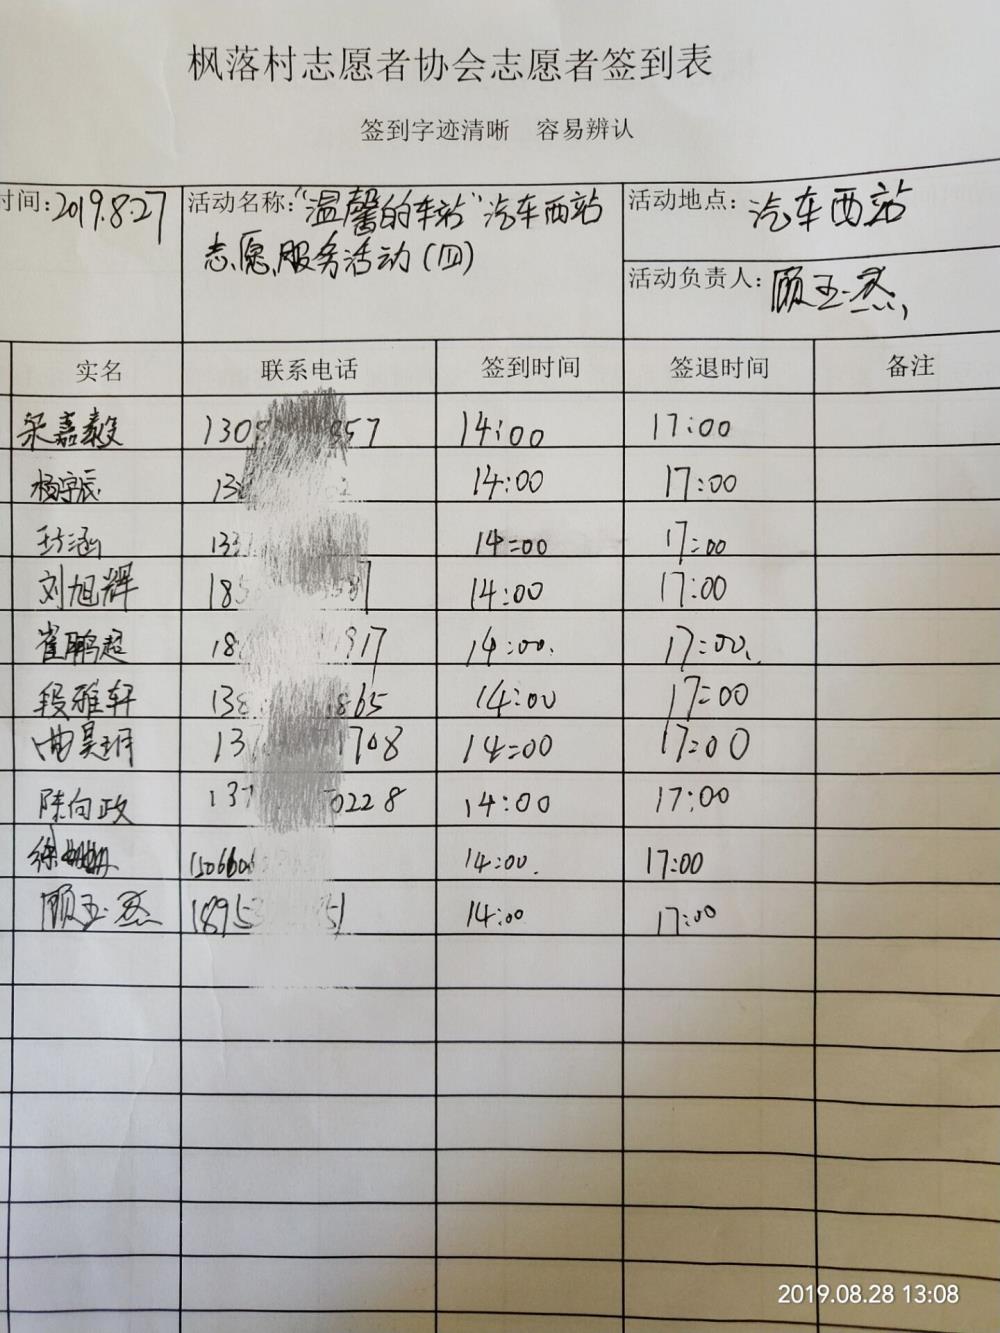 枫落村志愿者协会志愿者签到表
签到字迹清晰 容易辨认
时间:2019.8.27 活动名称:"温馨的车站"汽车西站 活动地点:汽车西站
志愿服务活动(四)
活动负责人:顾玉杰
实名 联系电话 签到时间 签退时间 备注
嘉毅 130 857 14:00 17:00
杨宇辰 13 14:00 17:00
涵 133 14:00 17:00
刘旭辉 18 14:00 17:00
崔鹏超 18 917 14:00. 17:00.
段雅轩 138 865 14:00 17:00
曲昊 13 1708 14:00 17:00
陈向政 137 0228 14:00 17:00
徐 150660 14:00. 17:00
顾玉杰 1895 51 14:00 17:00
2019.08.28 13:08